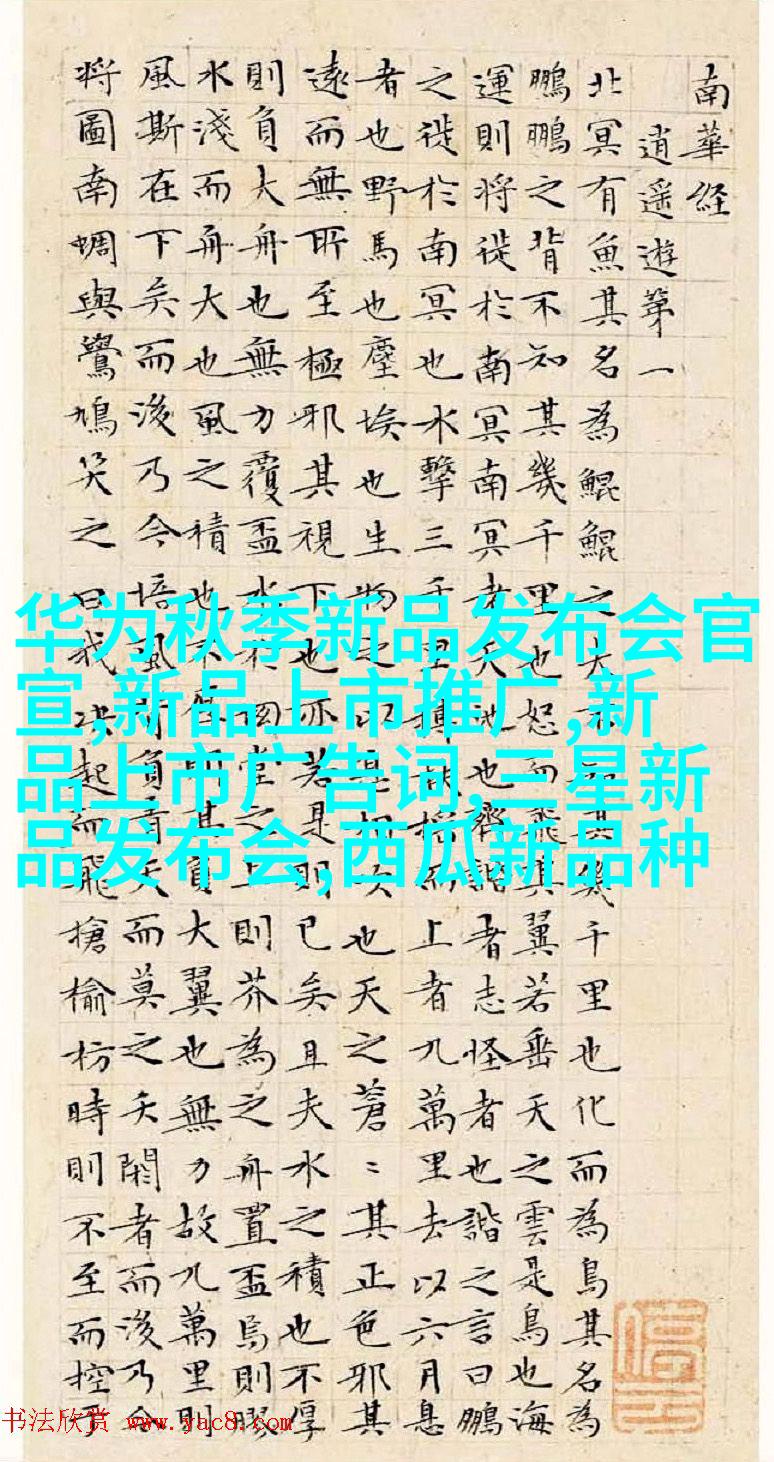 南華経
逍遥遊第一
北冥有魚其名為鯤鯤之大不知其幾千里也化而為鳥其名為
鵬鵬之背不知其幾千里也怒而飛其翼若垂天之雲是鳥也海
運則将徙於南冥南冥者天池也齊諧者志怪者也諧之言曰鵬
之徙於南冥也水擊三千里摶扶揺而上者九萬里去以六月息
者也野馬也塵埃也生物之以息相吹也天之蒼〻其正色邪其
遠而無所至極邪其視下也亦若是則已矣且夫水之積也不厚
則負大舟也無力覆盃水於坳堂之上則芥為之舟置盃焉則膠
水淺而舟大也風之積也不厚則其負大翼也無力故九萬里則
風斯在下矣而後乃今培風背負青天而莫之夭閼者而後乃今
将圖南蜩與鷽鳩笑之曰我决起而飛槍榆枋時則不至而控
华为秋季新品发布会官
宣,新品上市推广,新
品上市广告词,三星新
品发布会,西瓜新品种
书法欣赏 www.yac8.com